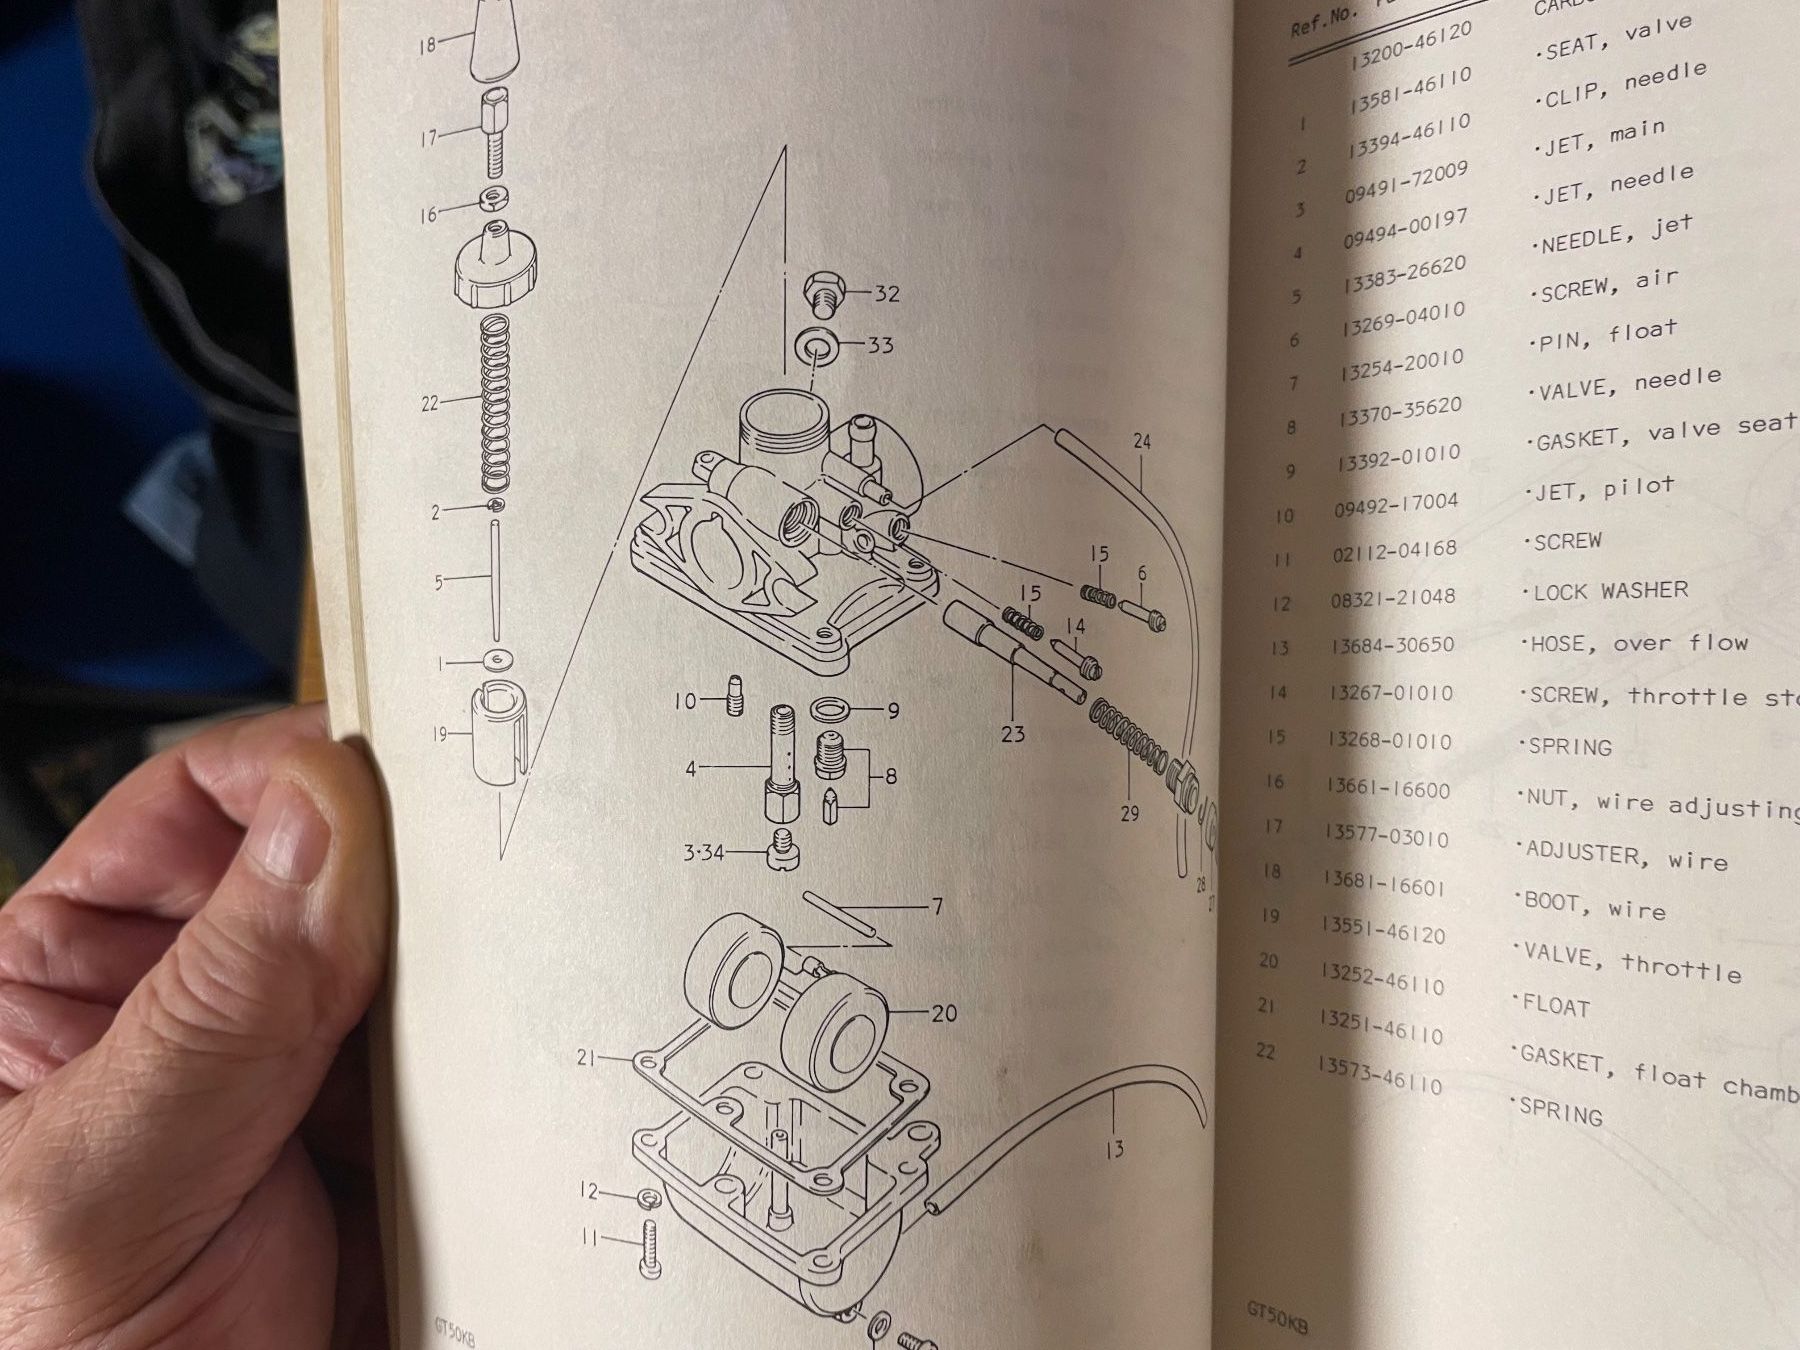 18
17
16
32
33
22
24
2
15
6
5
15
14
1
10
9
19
23
4
8
29
3·34
28
27
7
20
21
13
12
11
GT50KB
Ref.No.
13200-46120
1 13581-46110 ·SEAT, valve
2 13394-46110 ·CLIP, needle
3 09491-72009 ·JET, main
4 09494-00197 ·JET, needle
5 13383-26620 ·NEEDLE, jet
6 13269-04010 ·SCREW, air
7 13254-20010 ·PIN, float
8 13370-35620 ·VALVE, needle
9 13392-01010 ·GASKET, valve seat
10 09492-17004 ·JET, pilot
11 02112-04168 ·SCREW
12 08321-21048 ·LOCK WASHER
13 13684-30650 ·HOSE, over flow
14 13267-01010 ·SCREW, throttle
15 13268-01010 ·SPRING
16 13661-16600 ·NUT, wire adjusting
17 13577-03010 ·ADJUSTER, wire
18 13681-16601 ·BOOT, wire
19 13551-46120 ·VALVE, throttle
20 13252-46110 ·FLOAT
21 13251-46110 ·GASKET, float
22 13573-46110 ·SPRING
GT50KB